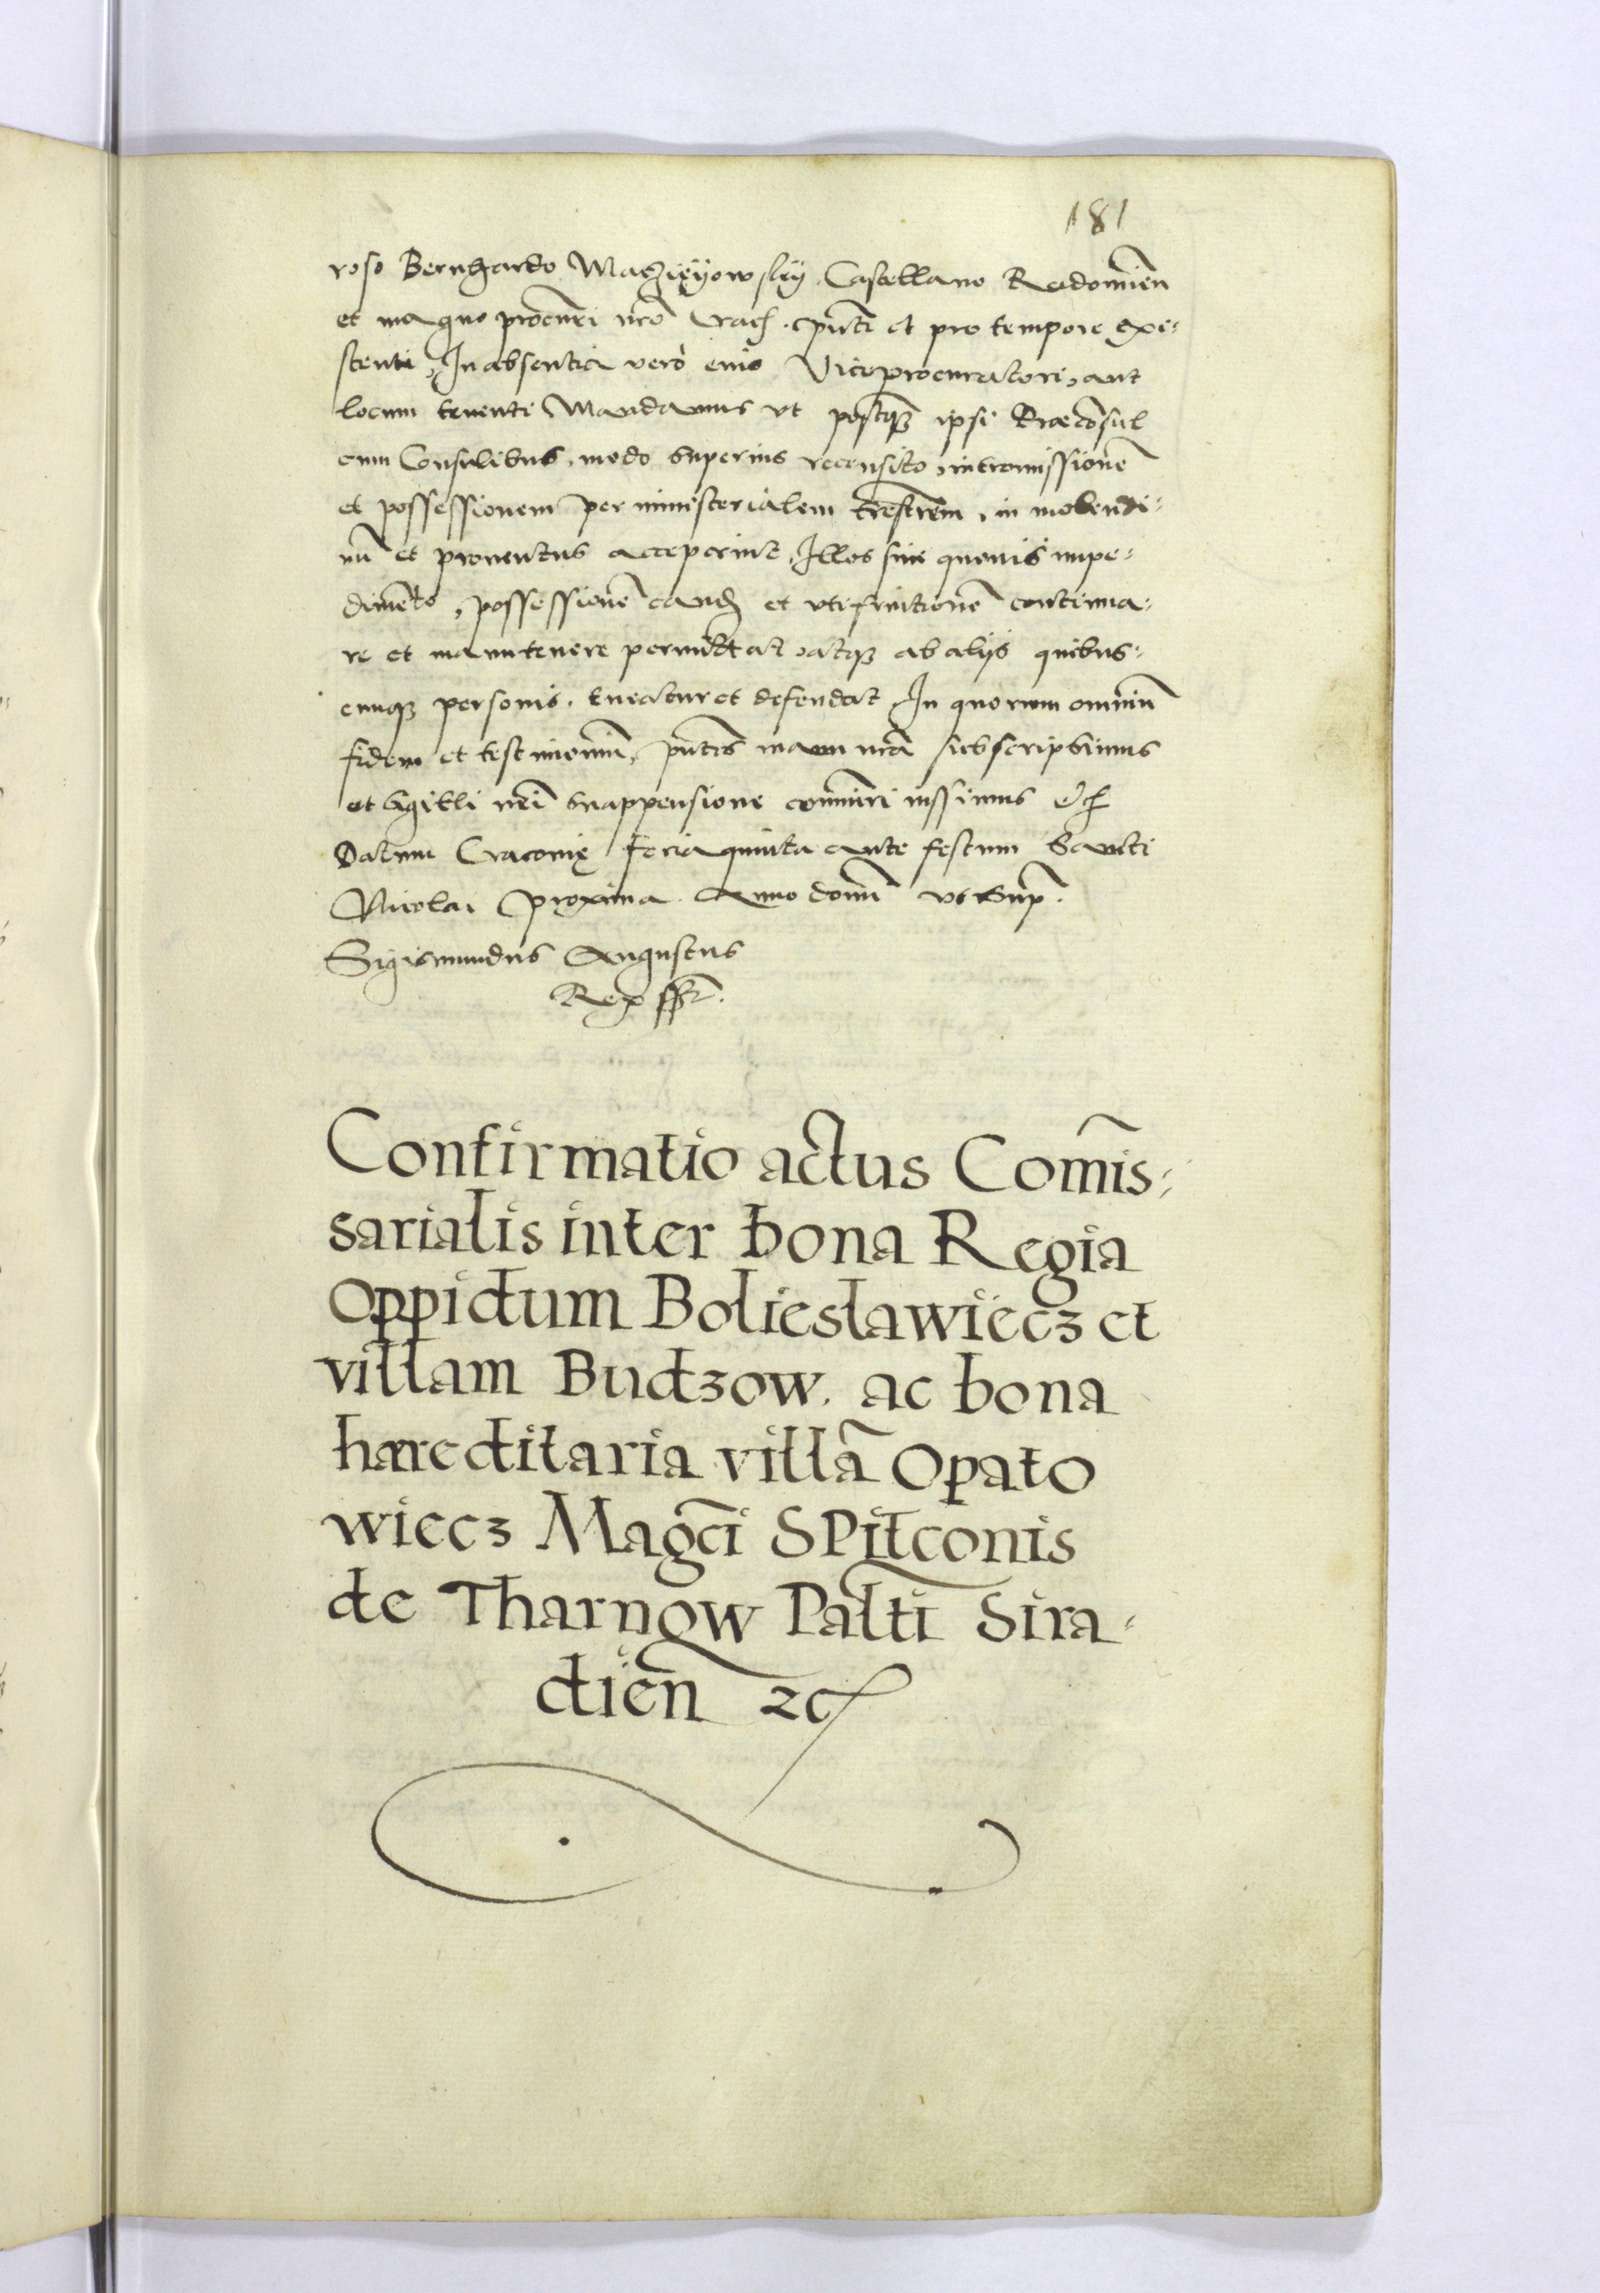 181
roso Bernhardo Maczieyowsky Castellano Radomien̄
et magno procur̄i nr̄o Crac̄. pn̄ti et pro tempore exi=
stenti, In absentia verò eius Viceprocuratori, aut
locum tenenti Mandamus vt postq̄ꝫ ipsi Procōsul
cum Consulibus, modo superius recensito, intromissionē
et possessionem per ministerialem terrestrem, in molendi=
nū et prouentus acceperint, Illos sine quouis impe=
dimēto, possessionē eand̄ et vtifruitionē continua=
re et manutenere permittat, atqꝫ ab alijs quibus=
cunqꝫ personis, tueatur et defendat In quorum omniū
fidem et testimoniū, pn̄tes manu nr̄a subscripsimus
et sigilli nr̄i subappensione com̄uniri iussimus etc̄
Datum Cracouię feria quinta ante festum Sancti
Nicolai proxima. Anno domī vt sup̄.
Sigismundus Augustus
Rex sst̄.
Confirmatio actus Com̄is=
sarialis inter bona Regia
Oppidum Boliesławiecz et
villam Budzow. ac bona
hæreditaria villā Opato
wiecz Magc̄i SPitconis
de Tharnow Palti Sira=
dien̄ ꝛc